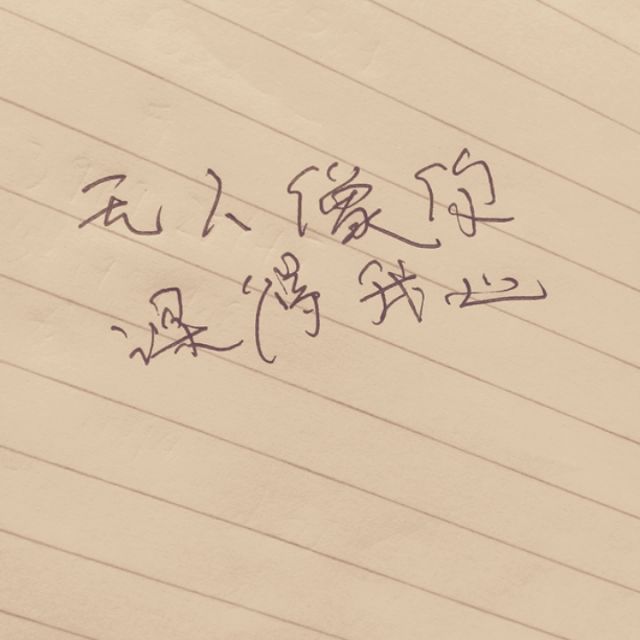 无人像你
深得我心